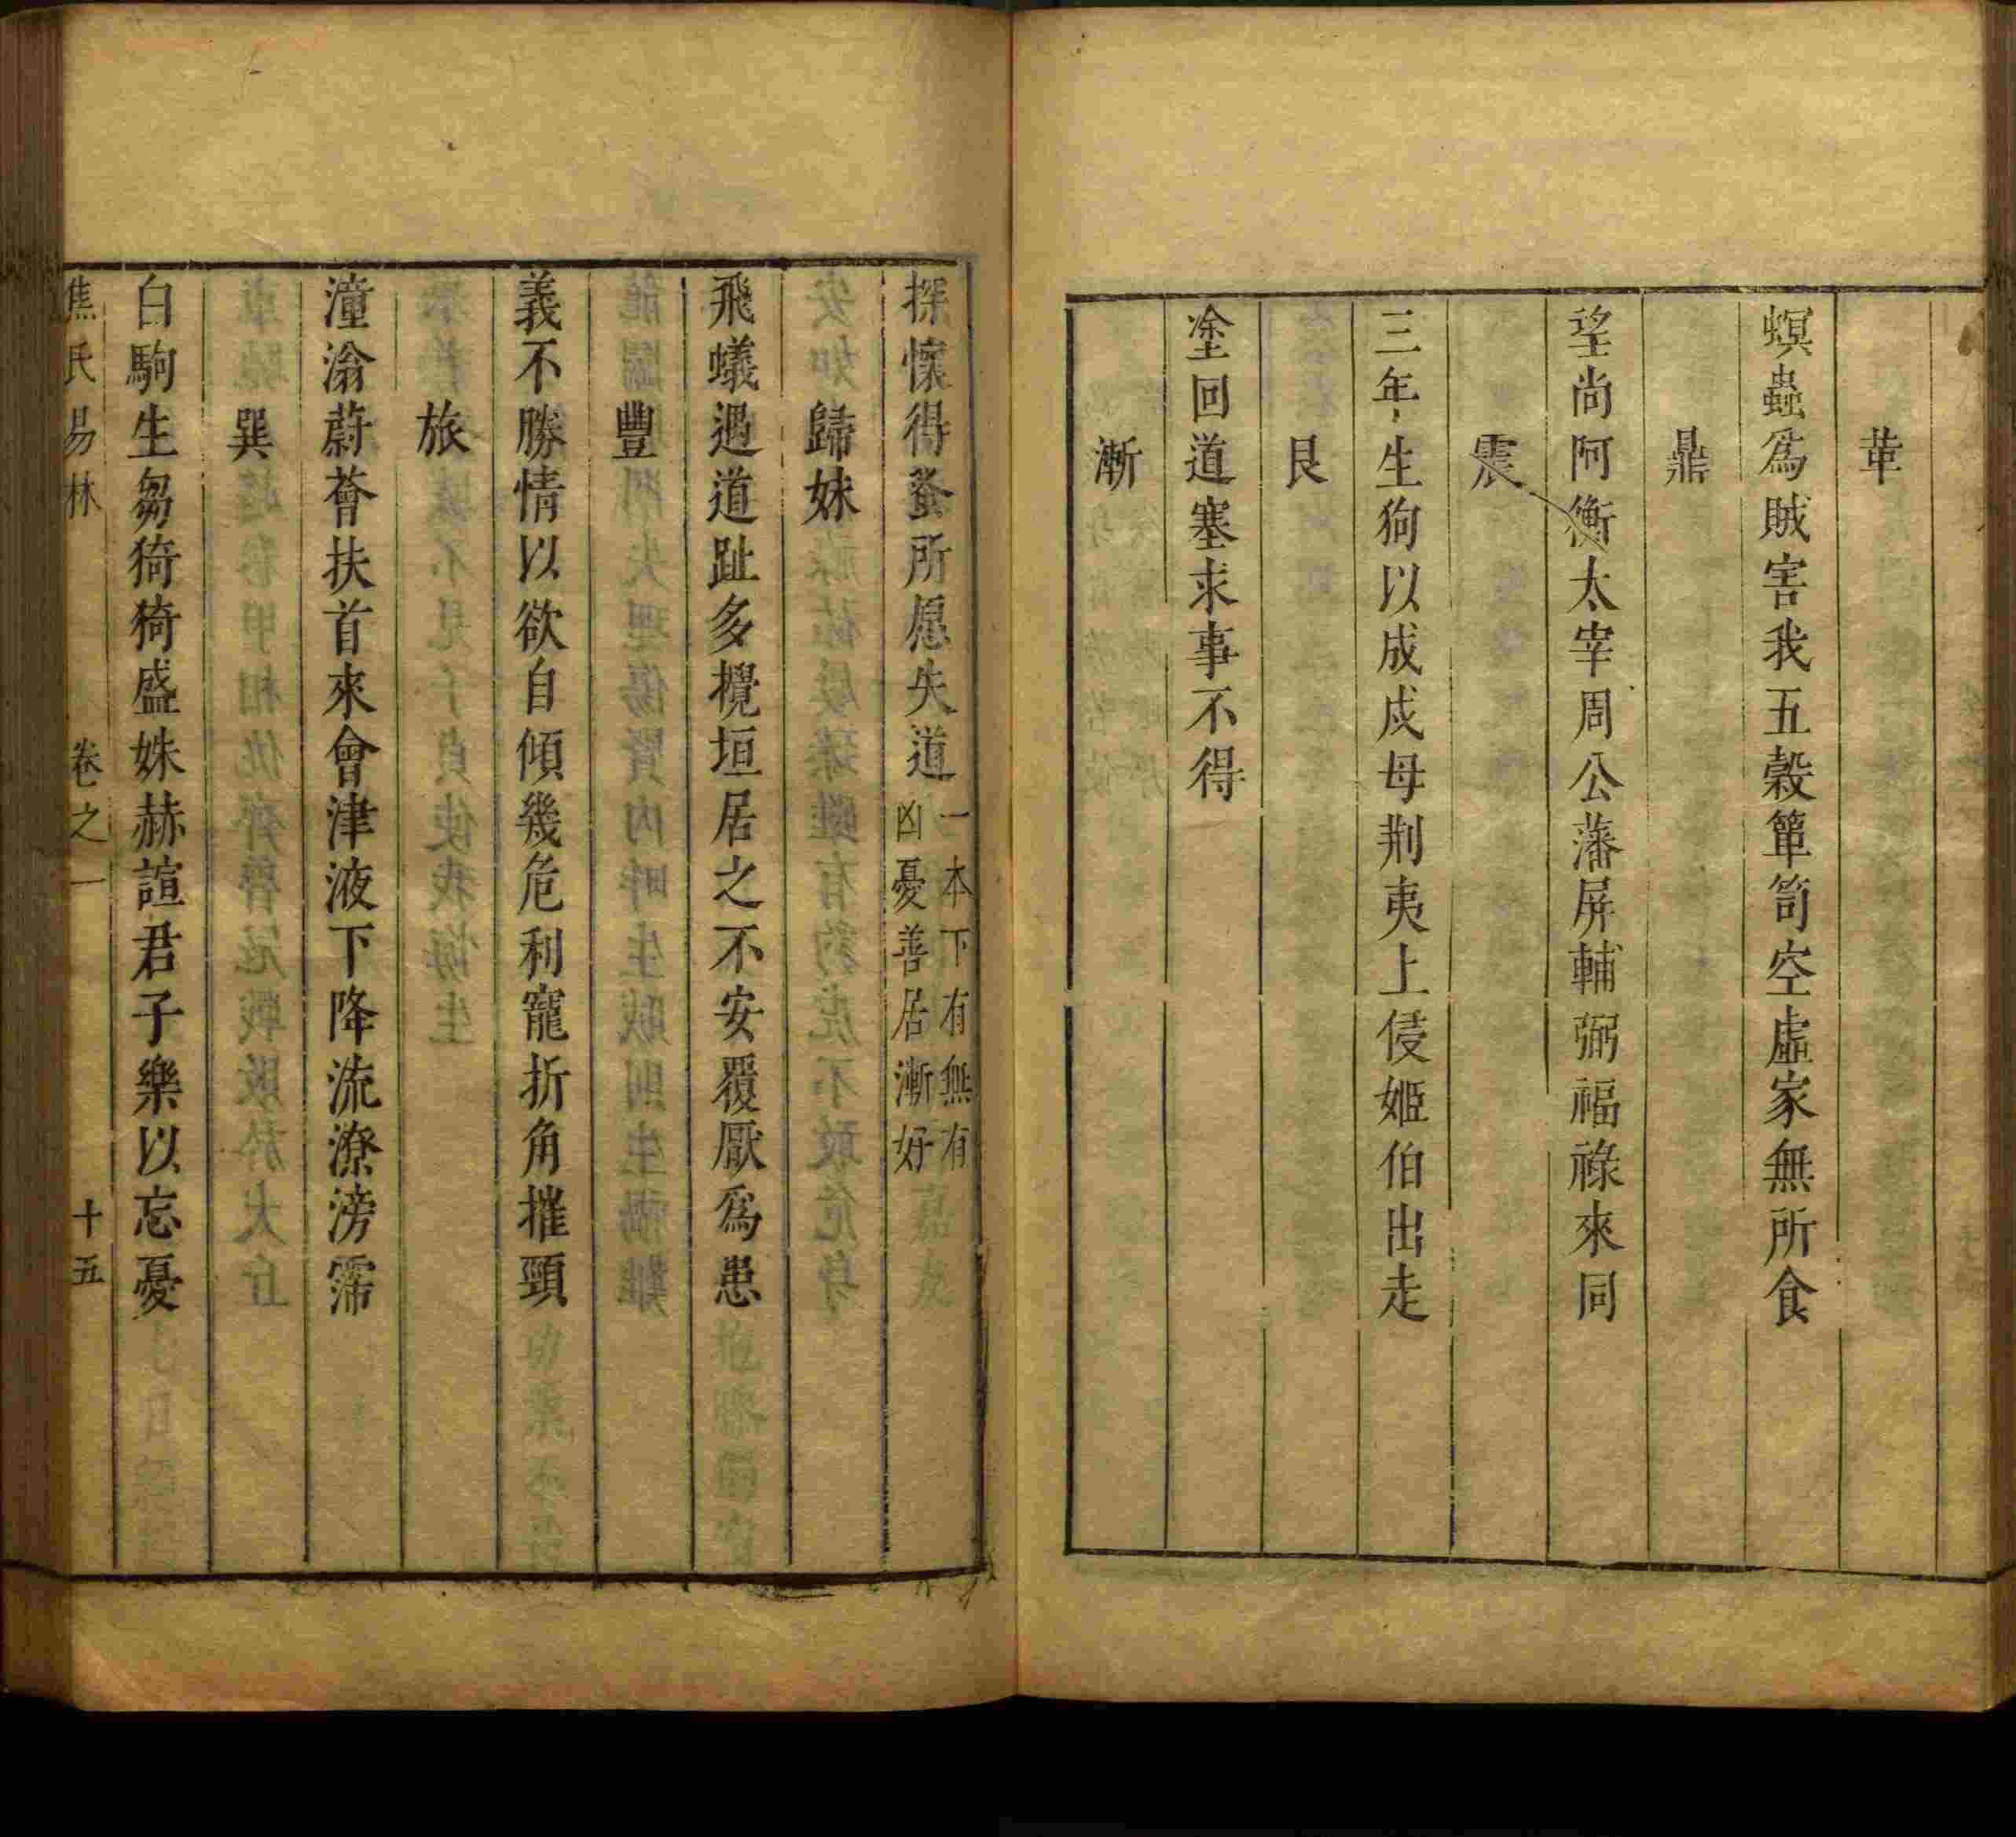 革
螟蟲爲賊害我五穀簞笥空虛家無所食
鼎
望尚阿衡太宰周公藩屏輔弼福祿來同
震
三年生狗以成戍母荆夷上侵姬伯出走
艮
塗回道塞求事不得
漸
探懷得蚤所愿失道一本下有無有
凶憂善居漸好
歸妹
飛蟻過道趾多攪垣居之不安覆厭爲患
豐
義不勝情以欲自傾幾危利寵折角摧頸
旅
潼滃蔚薈扶首來會津液下降流潦滂霈
巽
白駒生芻猗猗盛姝赫諠君子樂以忘憂
焦氏易林 卷之一 十五